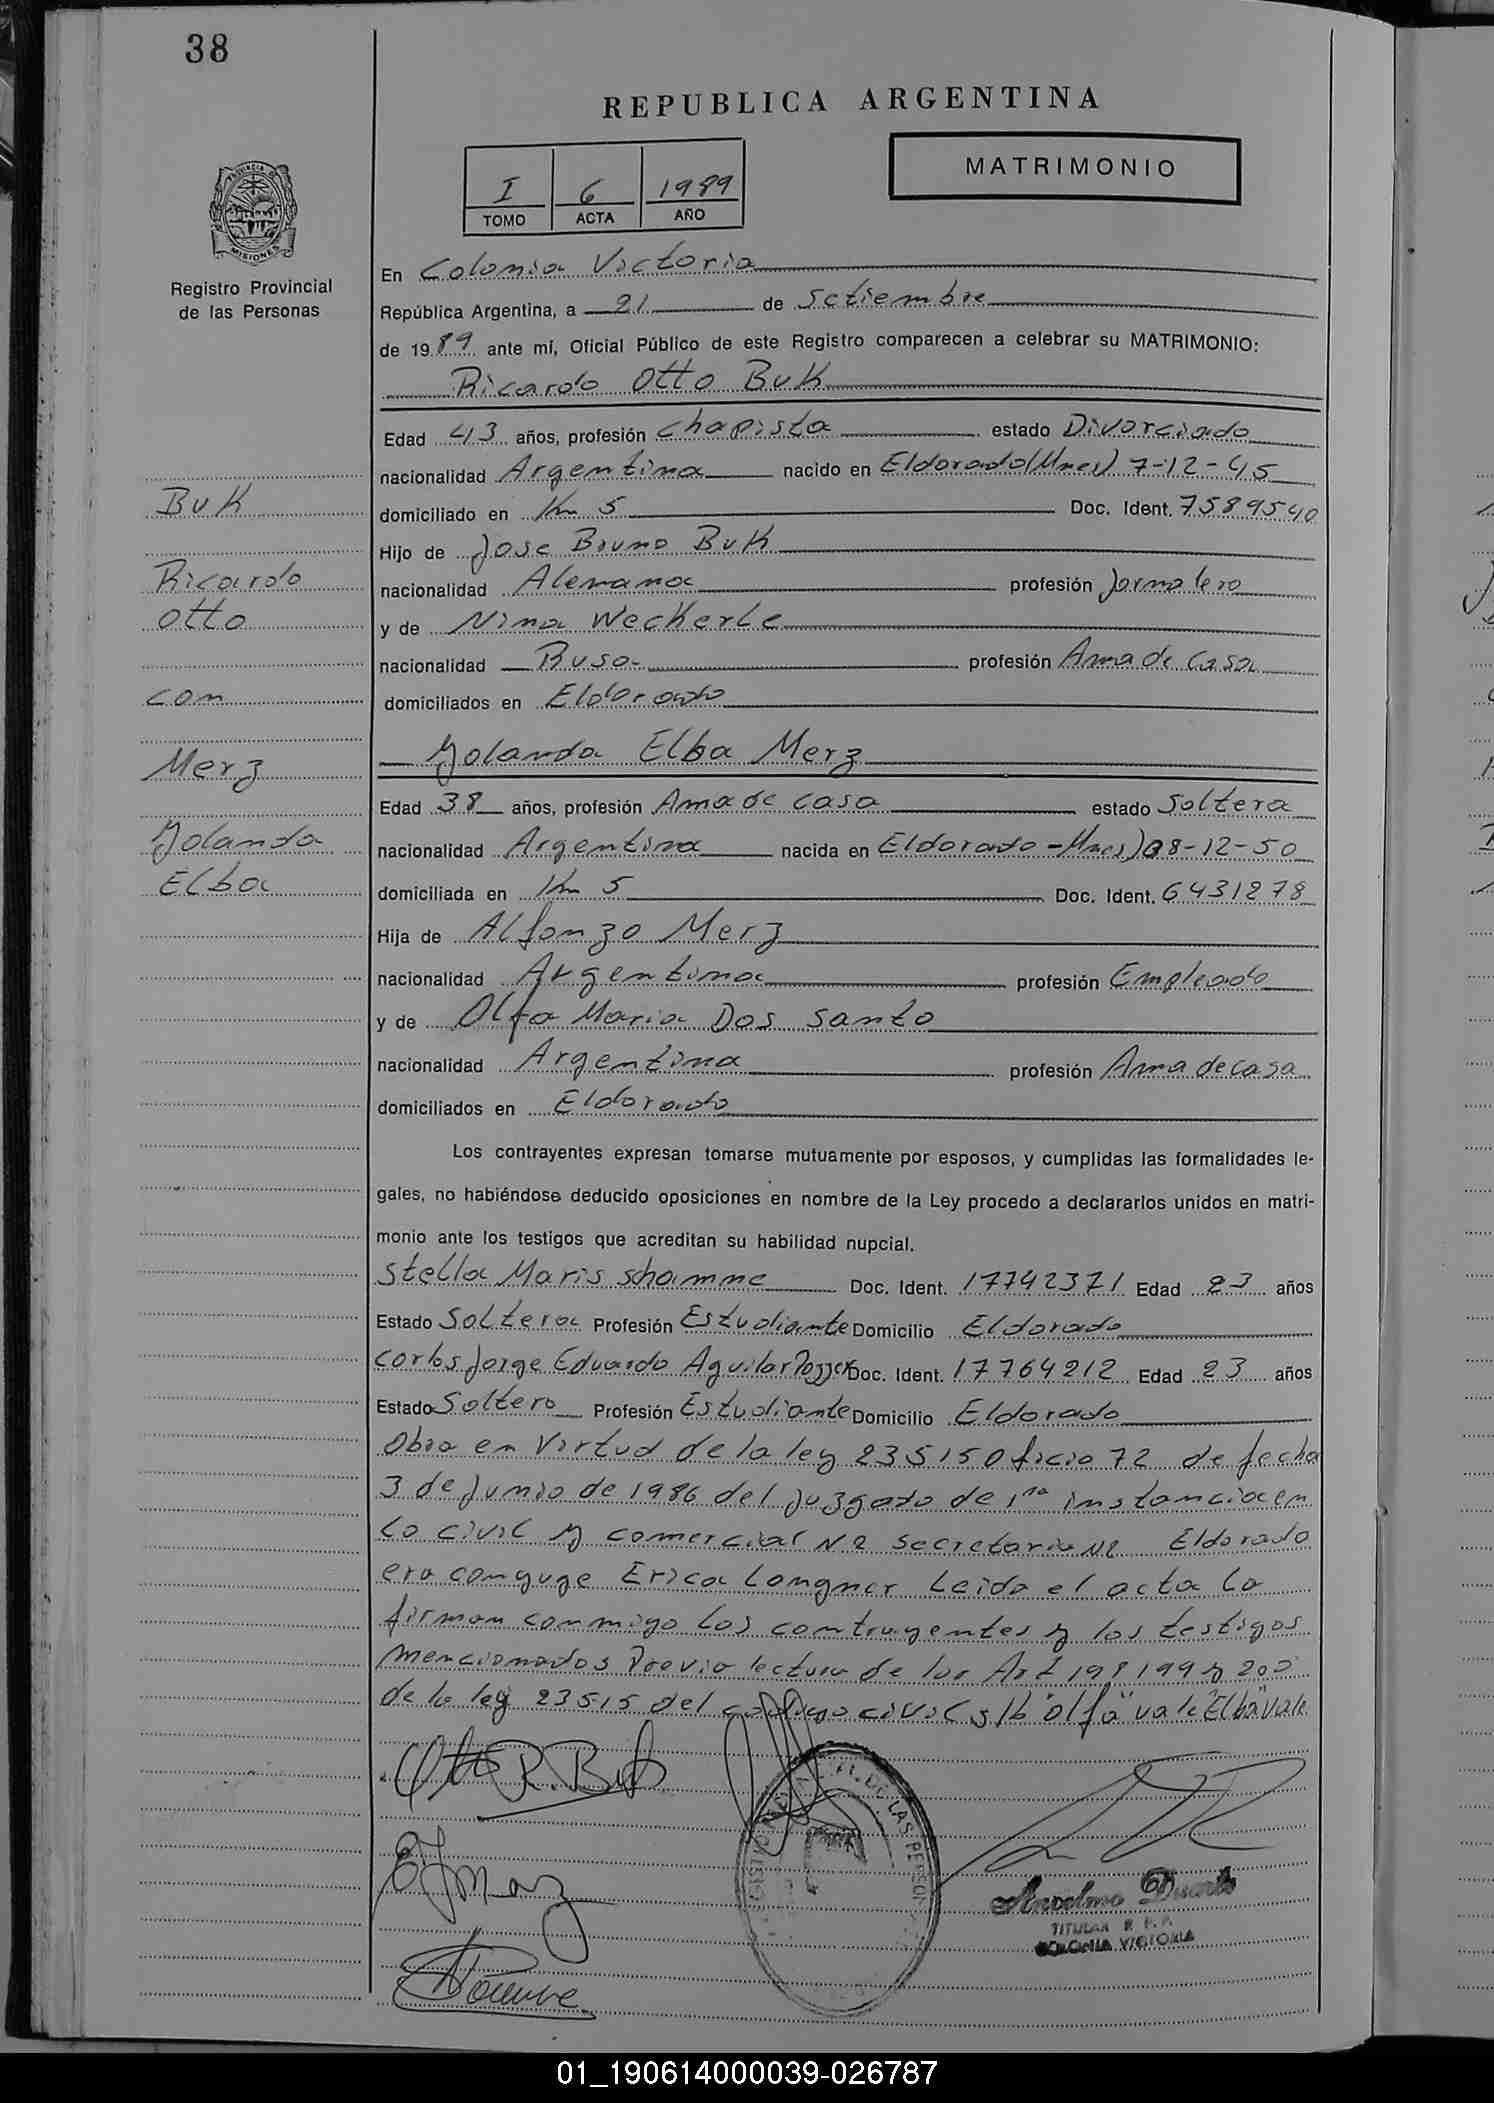 38
REPUBLICA ARGENTINA
MATRIMONIO
I 6 1989
TOMO ACTA AÑO
PROVINCIA DE
MISIONES
Registro Provincial
de las Personas
En Colonia Victoria
República Argentina, a 21 de Setiembre
de 1989 ante mí, Oficial Público de este Registro comparecen a celebrar su MATRIMONIO:
Ricardo Otto Buk
Edad 43 años, profesión Chapista estado Divorciado
nacionalidad Argentina nacido en Eldorado (Mnes) 7-12-45
Buk
domiciliado en Km 5 Doc. Ident. 7589540
Hijo de Jose Bruno Buk
Ricardo
nacionalidad Alemana profesión Jornalero
Otto
y de Nina Weckerle
nacionalidad Rusa profesión Ama de casa
con
domiciliados en Eldorado
Merz
Yolanda Elba Merz
Edad 38 años, profesión Ama de casa estado Soltera
Yolanda
nacionalidad Argentina nacida en Eldorado - Mnes) 08-12-50
Elba
domiciliada en Km 5 Doc. Ident. 6431278
Hija de Alfonzo Merz
nacionalidad Argentina profesión Empleado
y de Olfa Maria Dos Santo
nacionalidad Argentina profesión Ama de casa
domiciliados en Eldorado
Los contrayentes expresan tomarse mutuamente por esposos, y cumplidas las formalidades le-
gales, no habiéndose deducido oposiciones en nombre de la Ley procedo a declararlos unidos en matri-
monio ante los testigos que acreditan su habilidad nupcial.
Stella Maris Shamne Doc. Ident. 17742371 Edad 23 años
Estado Soltera Profesión Estudiante Domicilio Eldorado
Carlos Jorge Eduardo Aguilar Doc. Ident. 17764212 Edad 23 años
Estado Soltero Profesión Estudiante Domicilio Eldorado
Obra en Virtud de la ley 23515 Oficio 72 de fecha
3 de Junio de 1986 del Juzgado de 1ra instancia en
lo civil y comercial N2 secretaria N2 Eldorado
era conyuge Erica Langner Leida el acta la
firman conmigo los contrayentes y los testigos
mencionados Previa lectura de los Art 198 199 y 200
de la ley 23515 del codigo civil s/b "olfa" vale "Elba" vale
Otto R. Buk
Anselmo Duarte
TITULAR R. P. P.
COLONIA VICTORIA
01_190614000039-026787